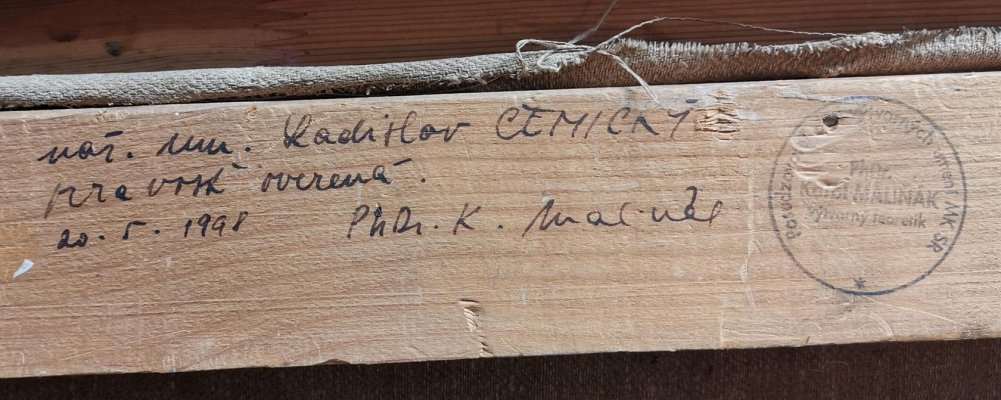 nár. um. Ladislav ČEMICKÝ
pravosť overená.
20. 5. 1998 PhDr. K. Malinák
výtvarných umení MK SR
PhDr.
MALINÁK
výtvarný teoretik